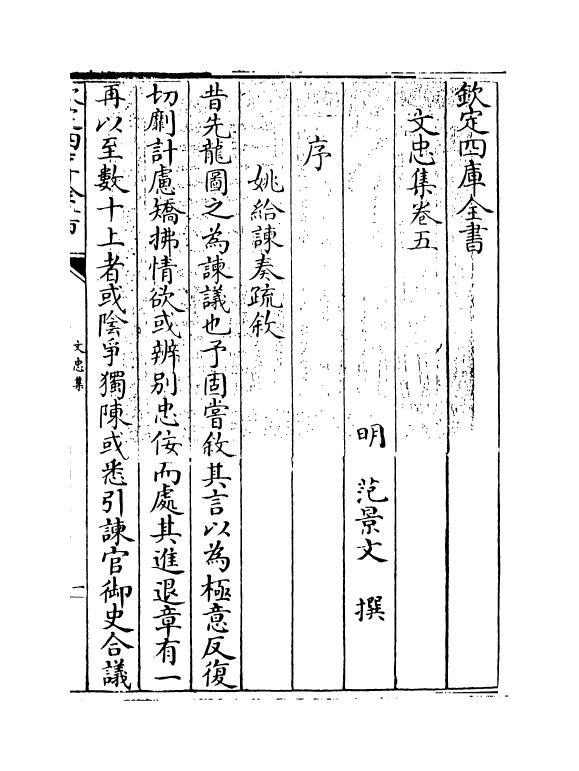 欽定四庫全書
文忠集卷五
明 范景文 撰
序
姚給諫奏疏敘
昔先龍圖之為諫議也予固嘗敘其言以為極意反復
切劘計慮矯拂情欲或辨别忠佞而處其進退章有一
再以至數十上者或陰爭獨陳或悉引諫官御史合議
文忠集